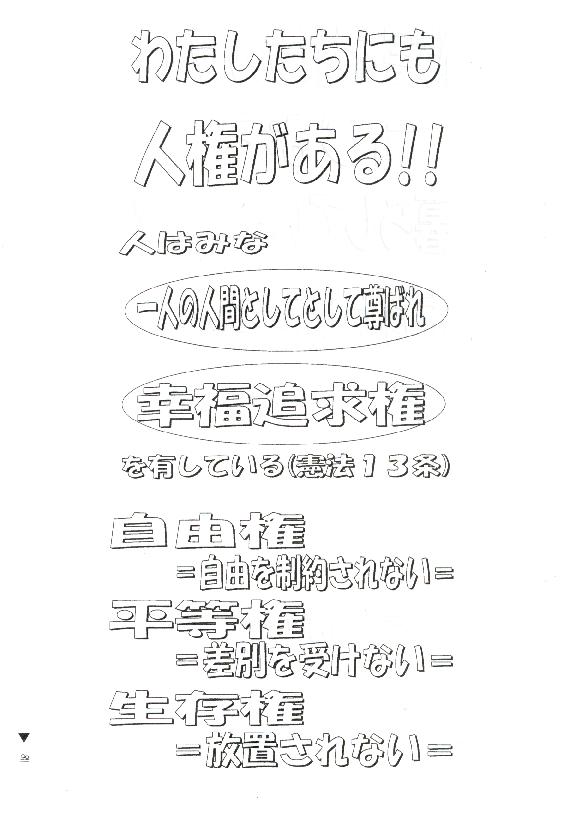 わたしたちにも
人権がある!!
人はみな
一人の人間としてとして尊ばれ
幸福追求権
を有している(憲法13条)
自由権
=自由を制約されない=
平等権
=差別を受けない=
生存権
=放置されない=
▼